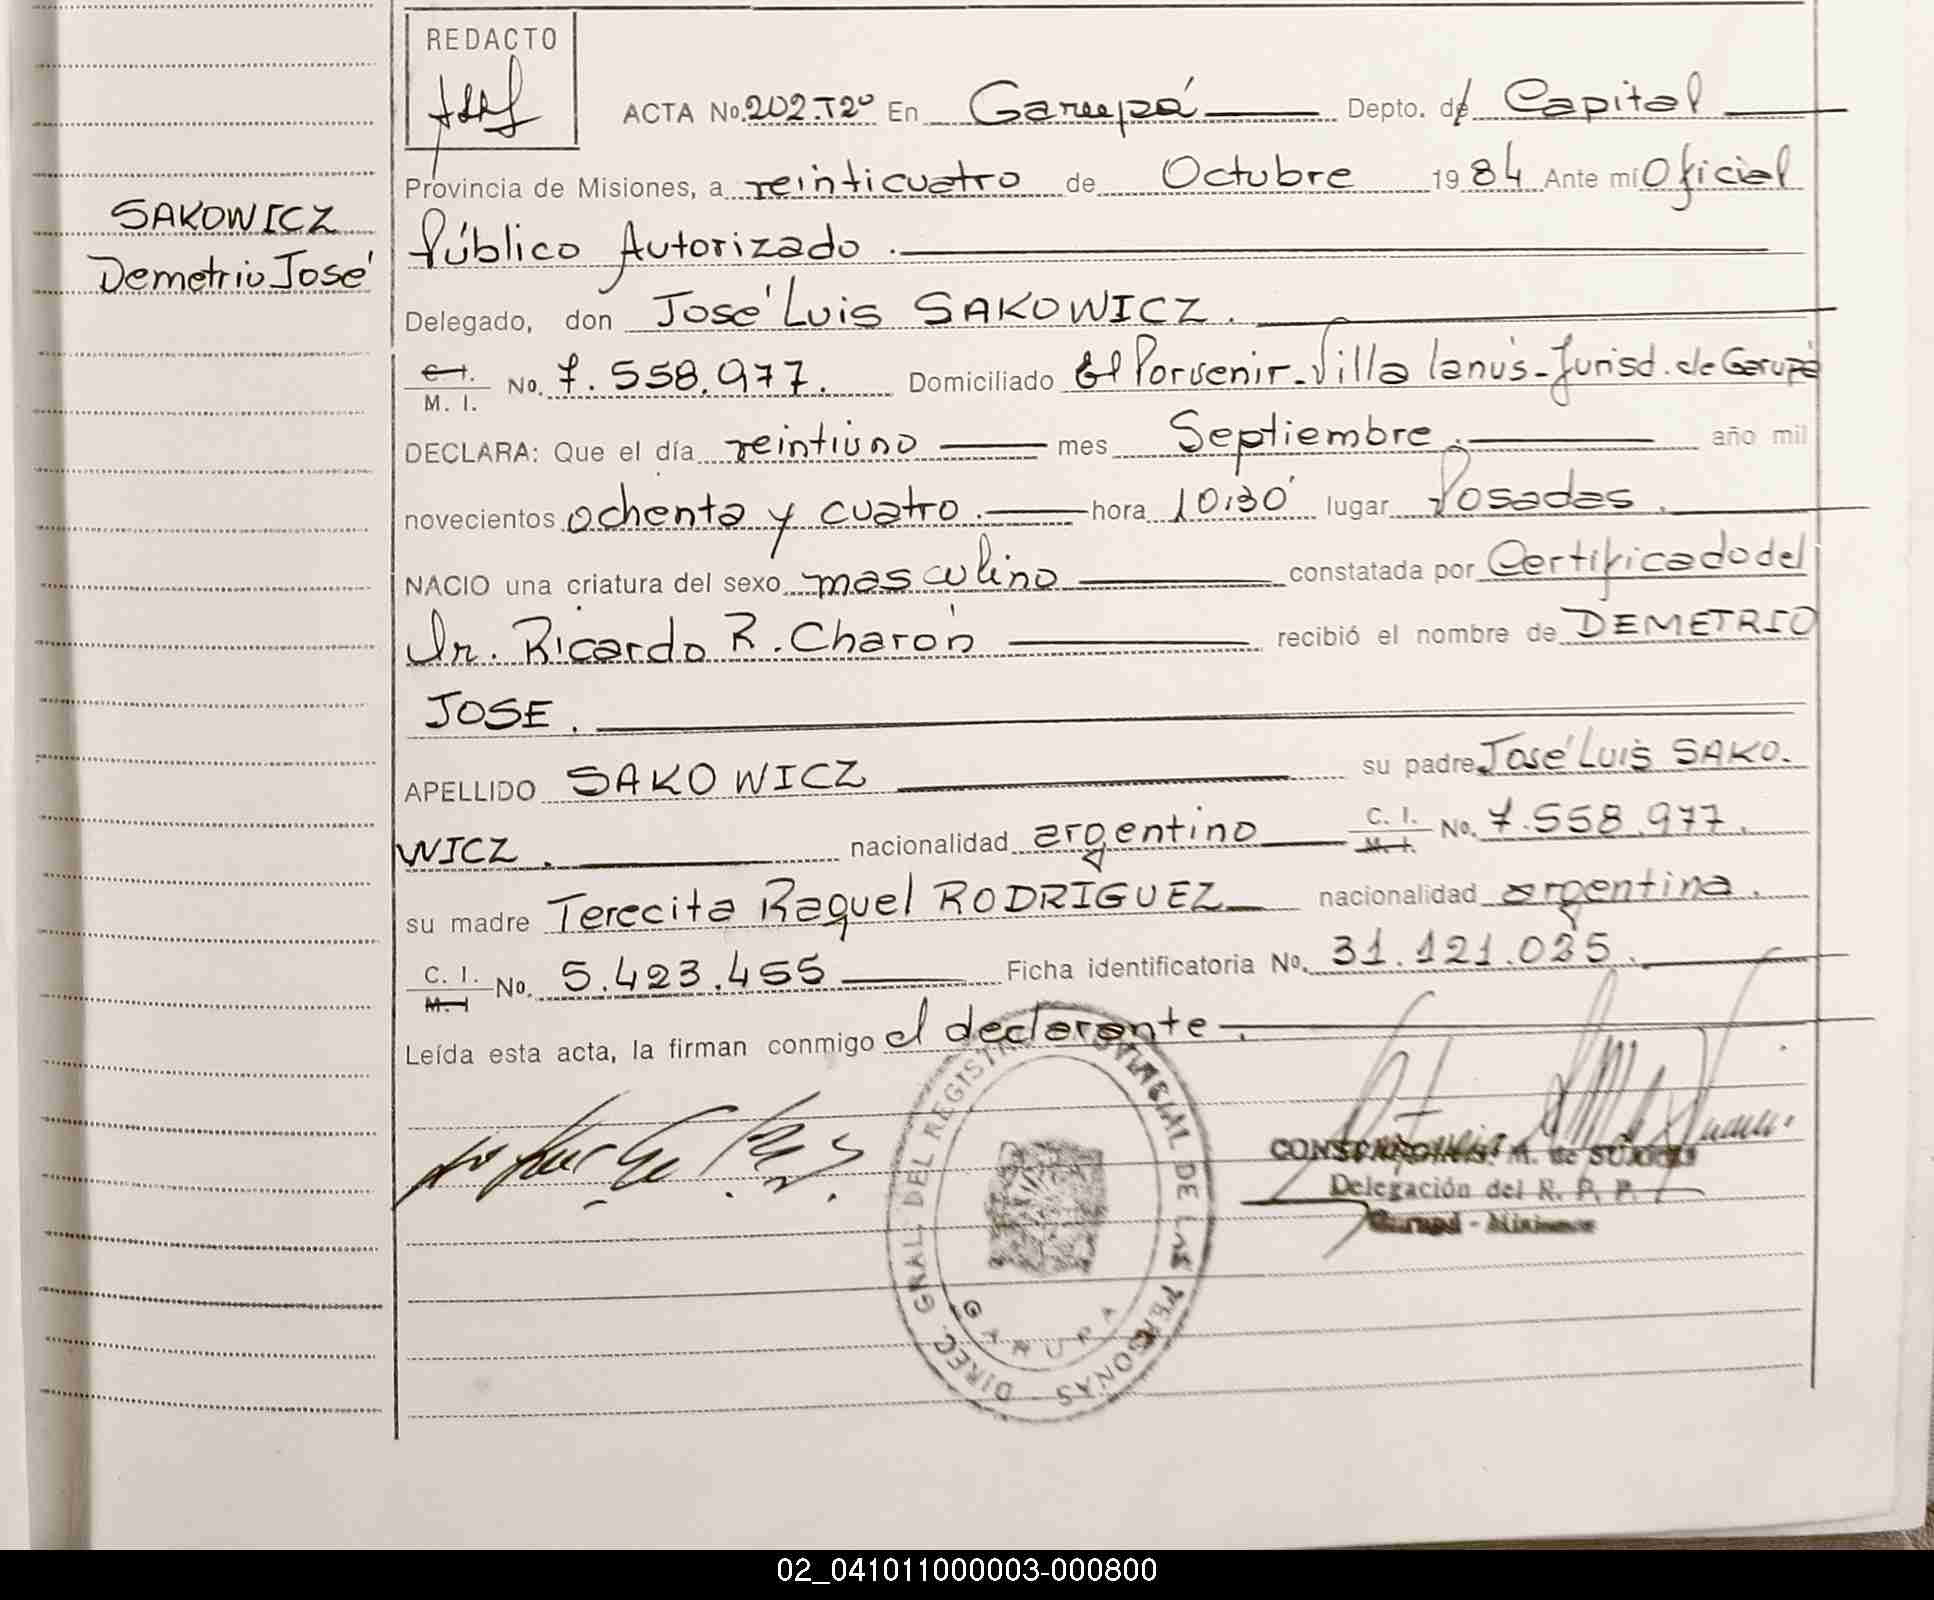 REDACTO
ACTA No. 202.T2º En Garupá Depto. de Capital
Provincia de Misiones, a veinticuatro de Octubre 1984 Ante mí Oficial
Público Autorizado.
SAKOWICZ
Demetrio José
Delegado, don José Luis SAKOWICZ.
C. I. M. I. No. 7.558.977. Domiciliado El Porvenir-Villa Lanús-Jurisd. de Garupá
DECLARA: Que el día veintiuno mes Septiembre. año mil
novecientos ochenta y cuatro. hora 10:30' lugar Posadas.
NACIO una criatura del sexo masculino constatada por Certificado del
Dr. Ricardo R. Charón recibió el nombre de DEMETRIO
JOSE.
APELLIDO SAKOWICZ su padre José Luis SAKO.
WICZ. nacionalidad argentino C. I. M. I. No. 7.558.977.
su madre Terecita Raquel RODRIGUEZ nacionalidad argentina.
C. I. M. I No. 5.423.455 Ficha identificatoria No. 31.121.035.
Leída esta acta, la firman conmigo el declarante.
DIREC. GRAL. DEL REGISTRO PROVINCIAL DE LAS PERSONAS
GARUPA
Delegación del R. P. P.
Garupá - Misiones
02_041011000003-000800